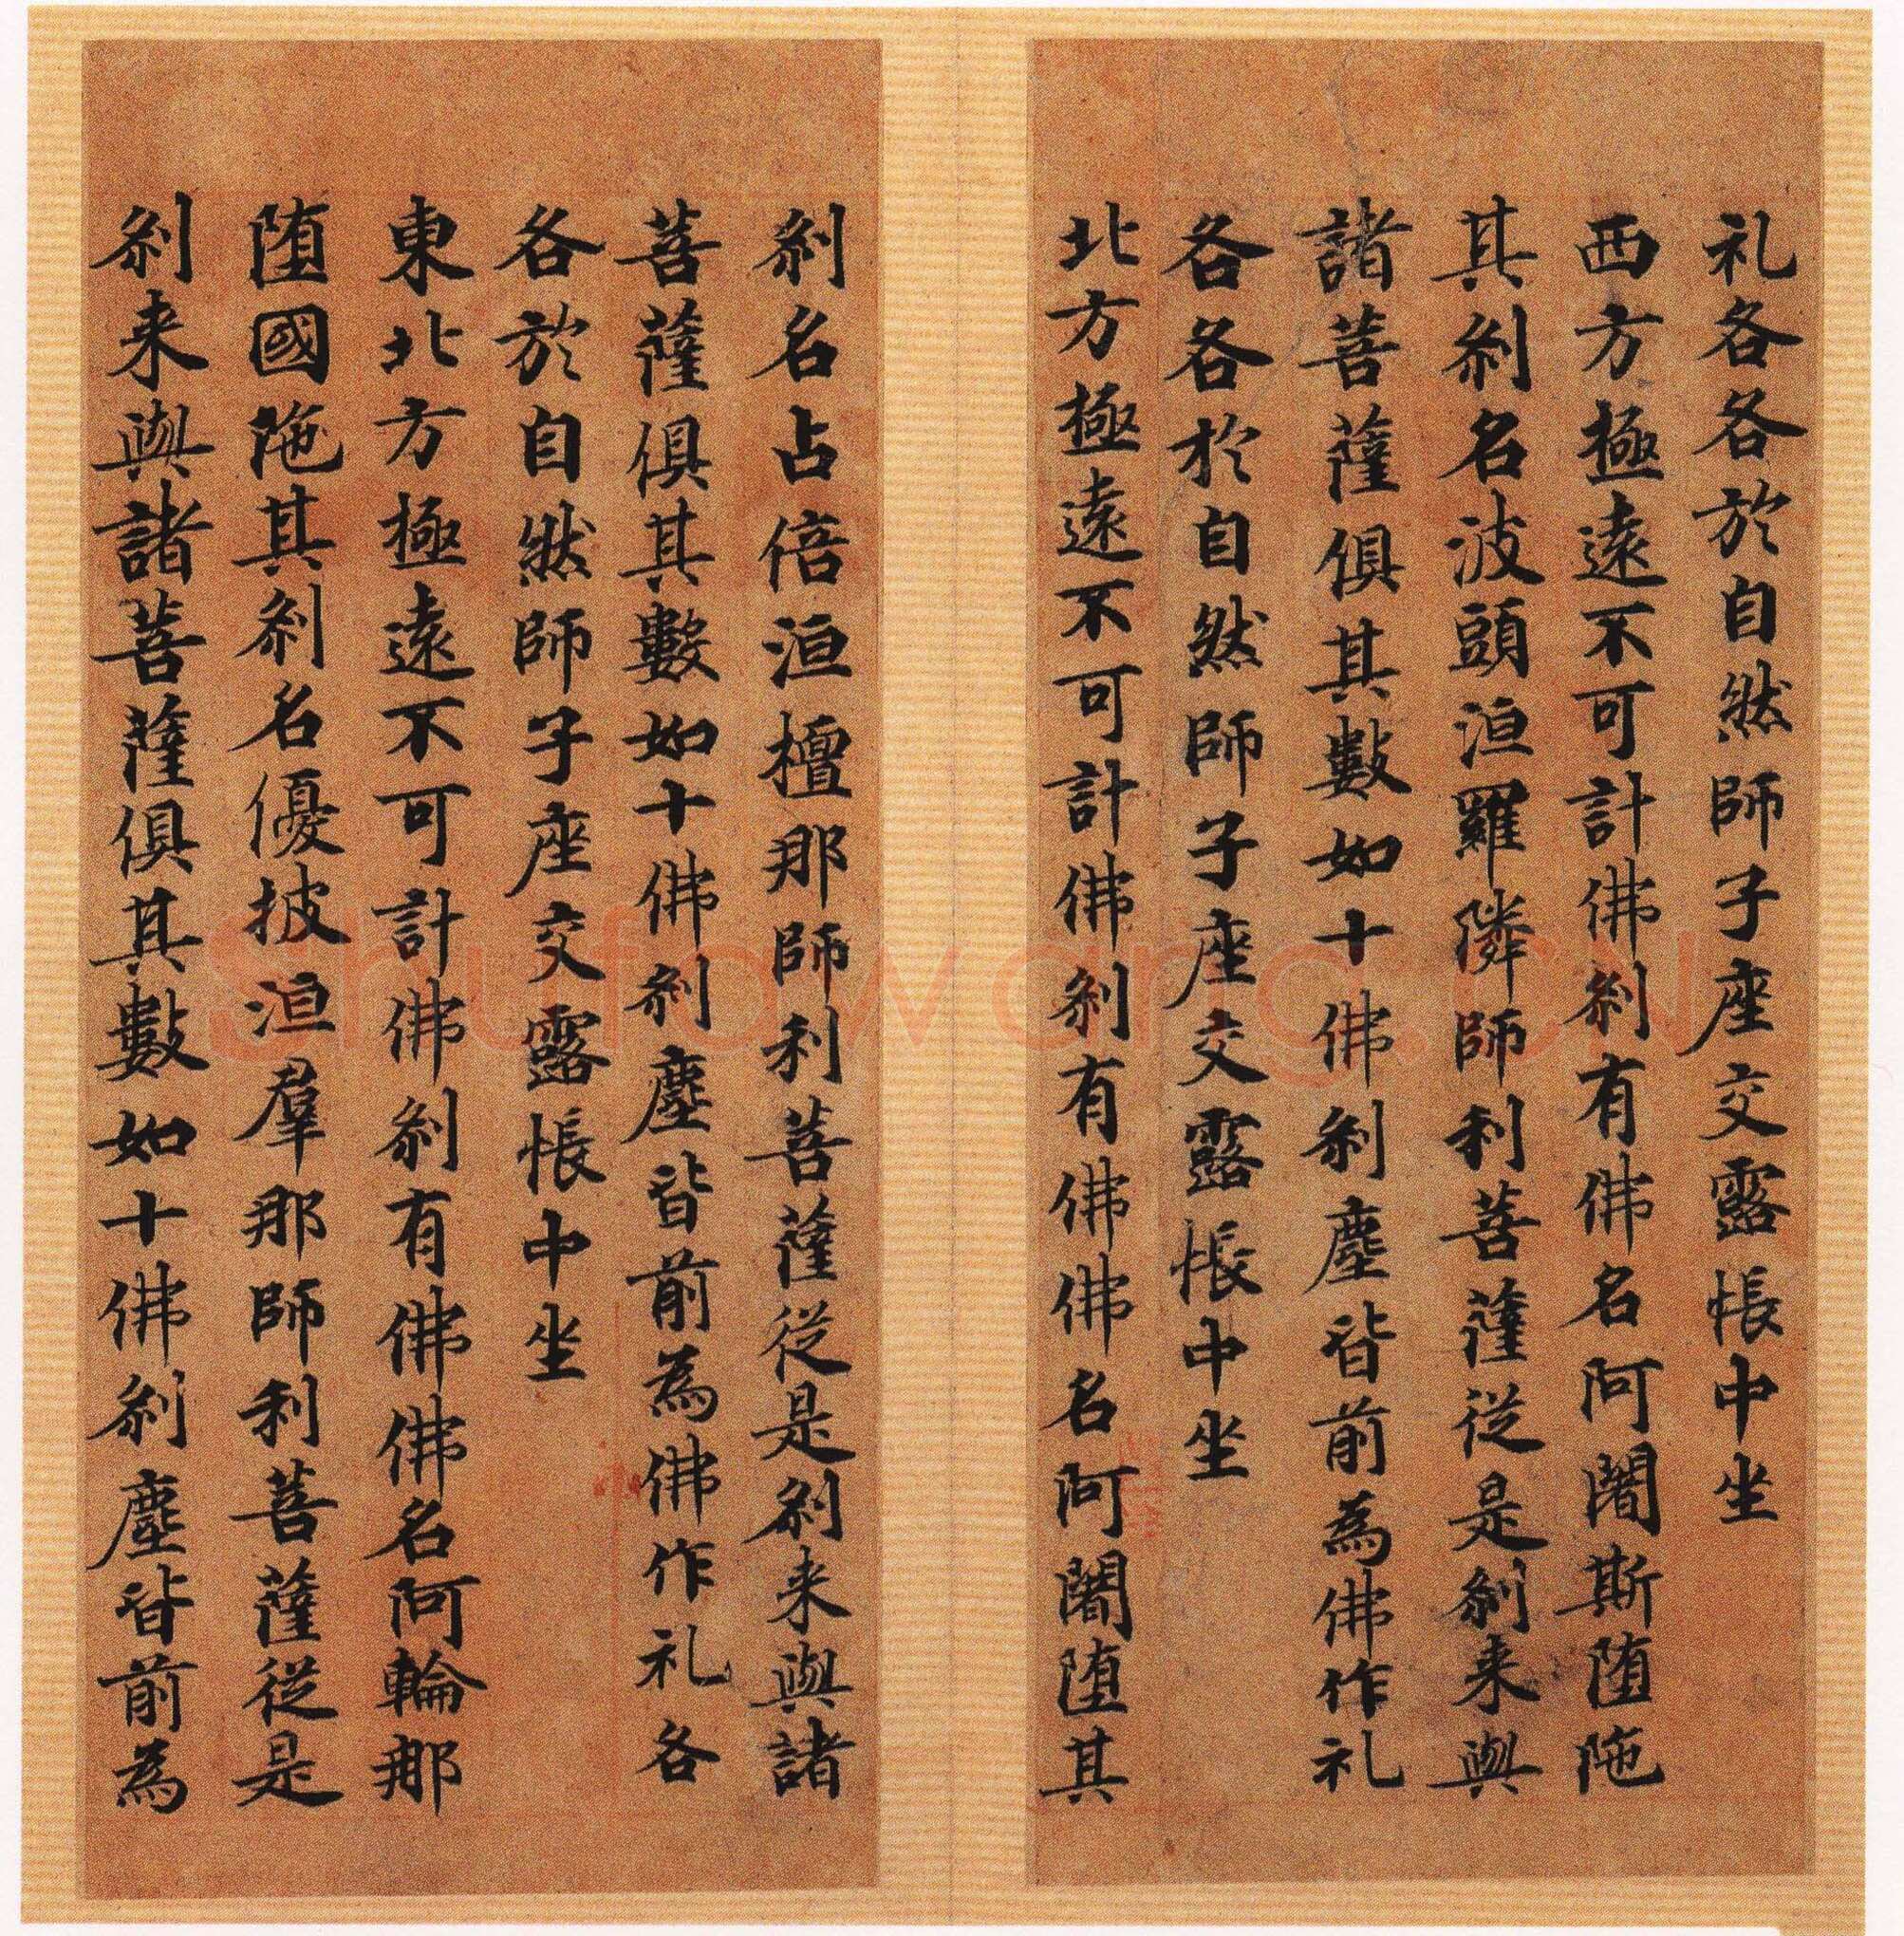 礼各各於自然師子座交露帳中坐
西方極遠不可計佛刹有佛名阿闍斯堕陁
其刹名波頭洹羅隣師利菩薩從是刹来與
諸菩薩俱其數如十佛刹塵皆前為佛作礼
各各於自然師子座交露帳中坐
北方極遠不可計佛刹有佛佛名阿闍堕其
刹名占倍洹檀那師利菩薩從是刹来與諸
菩薩俱其數如十佛刹塵皆前為佛作礼各
各於自然師子座交露帳中坐
東北方極遠不可計佛刹有佛佛名阿輪那
堕國陁其刹名優披洹羣那師利菩薩從是
刹来與諸菩薩俱其數如十佛刹塵皆前為
shufawang.cn